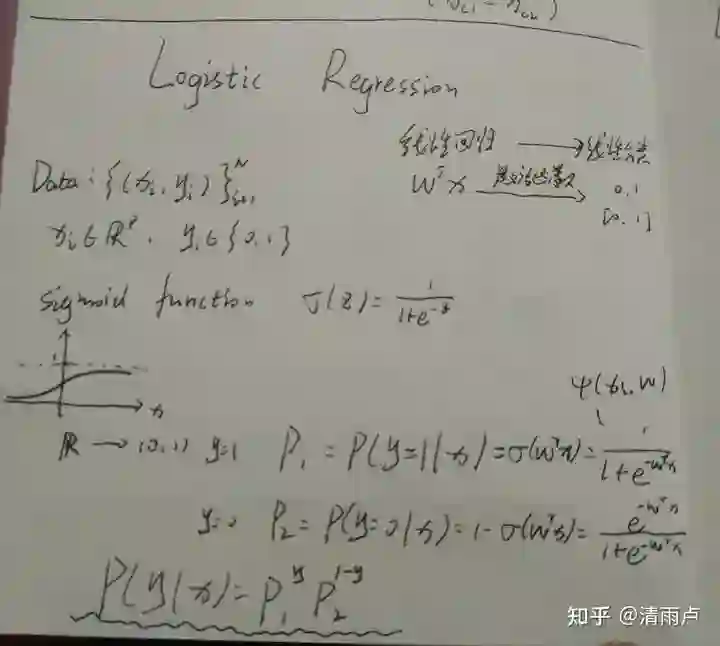 Logistic Regression
线性回归 ⟶ 线性分类
Data: {(xᵢ, yᵢ)}ᴺᵢ₌₁
wᵀx 激活函数 ⟶ 0, 1
[0, 1]
xᵢ ∈ ℝᵖ, yᵢ ∈ {0, 1}
sigmoid function σ(z) = 1/(1+e^(-z))
1
x
ψ(xᵢ, w)
ℝ → (0, 1) y=1 P₁ = P(y=1|x) = σ(wᵀx) = 1/(1+e^(-wᵀx))
y=0 P₂ = P(y=0|x) = 1-σ(wᵀx) = e^(-wᵀx)/(1+e^(-wᵀx))
P(y|x) = P₁^y P₂^(1-y)
知乎 @清雨卢